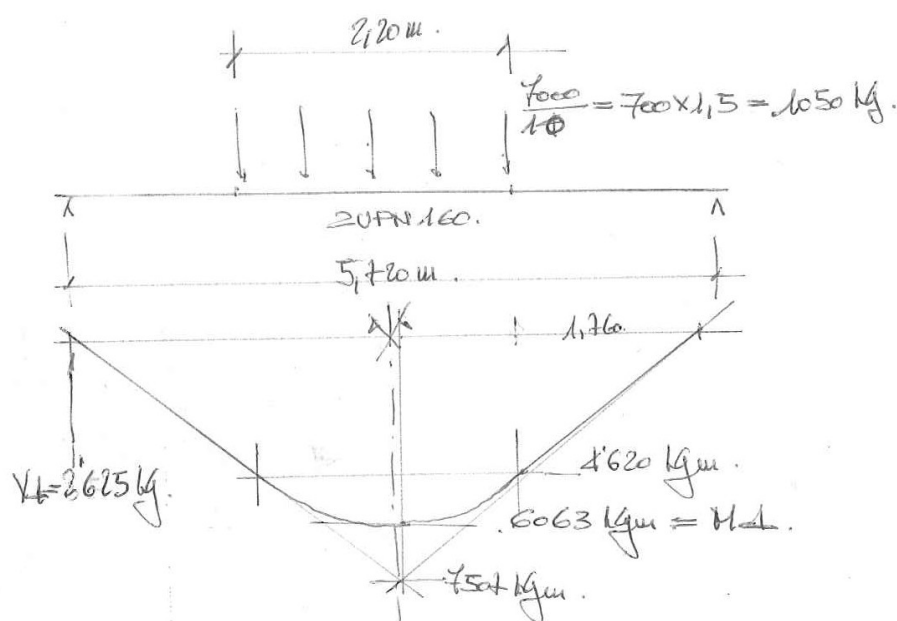 2,20 m.
7000/10 = 700 x 1,5 = 1050 kg.
2UPN 160.
5,720 m.
1,760
V1=2'625 kg.
4'620 kgm.
6063 kgm = M1.
7507 kgm.